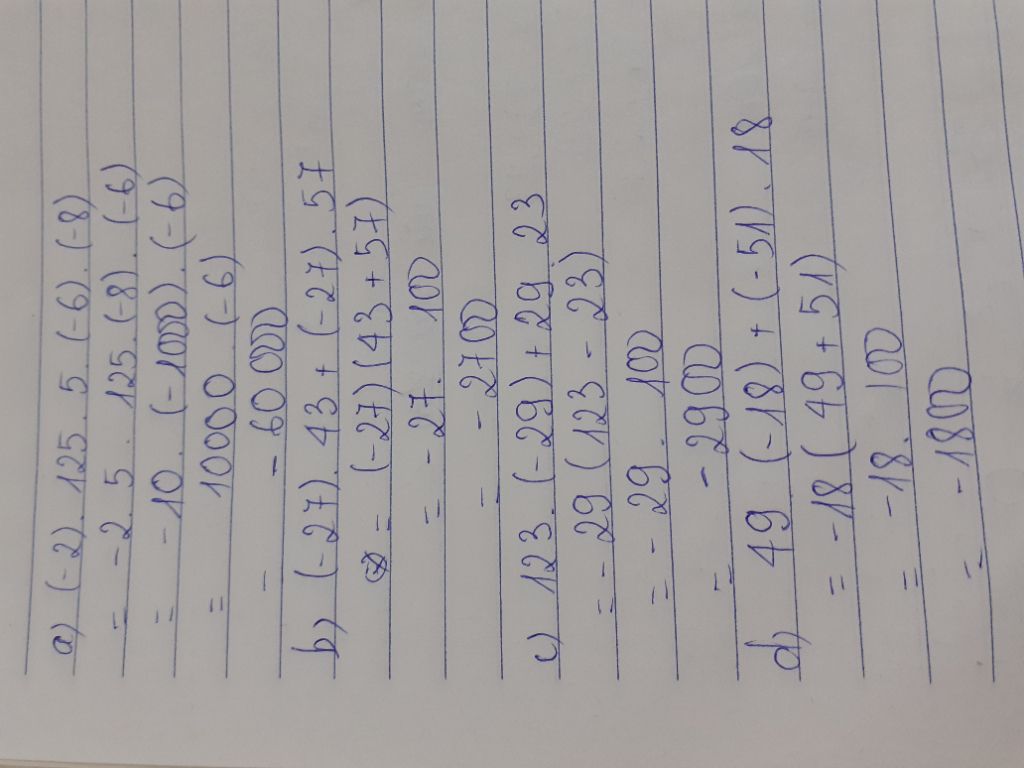 a) (-2). 125. 5. (-6). (-8)
= -2. 5. 125. (-8). (-6)
= -10. (-1000). (-6)
= 10000. (-6)
= -60000
b) (-27). 43 + (-27). 57
= (-27) (43 + 57)
= -27. 100
= -2700
c) 123. (-29) + 29. 23
= -29 (123 - 23)
= -29. 100
= -2900
d) 49. (-18) + (-51). 18
= -18 (49 + 51)
= -18. 100
= -1800